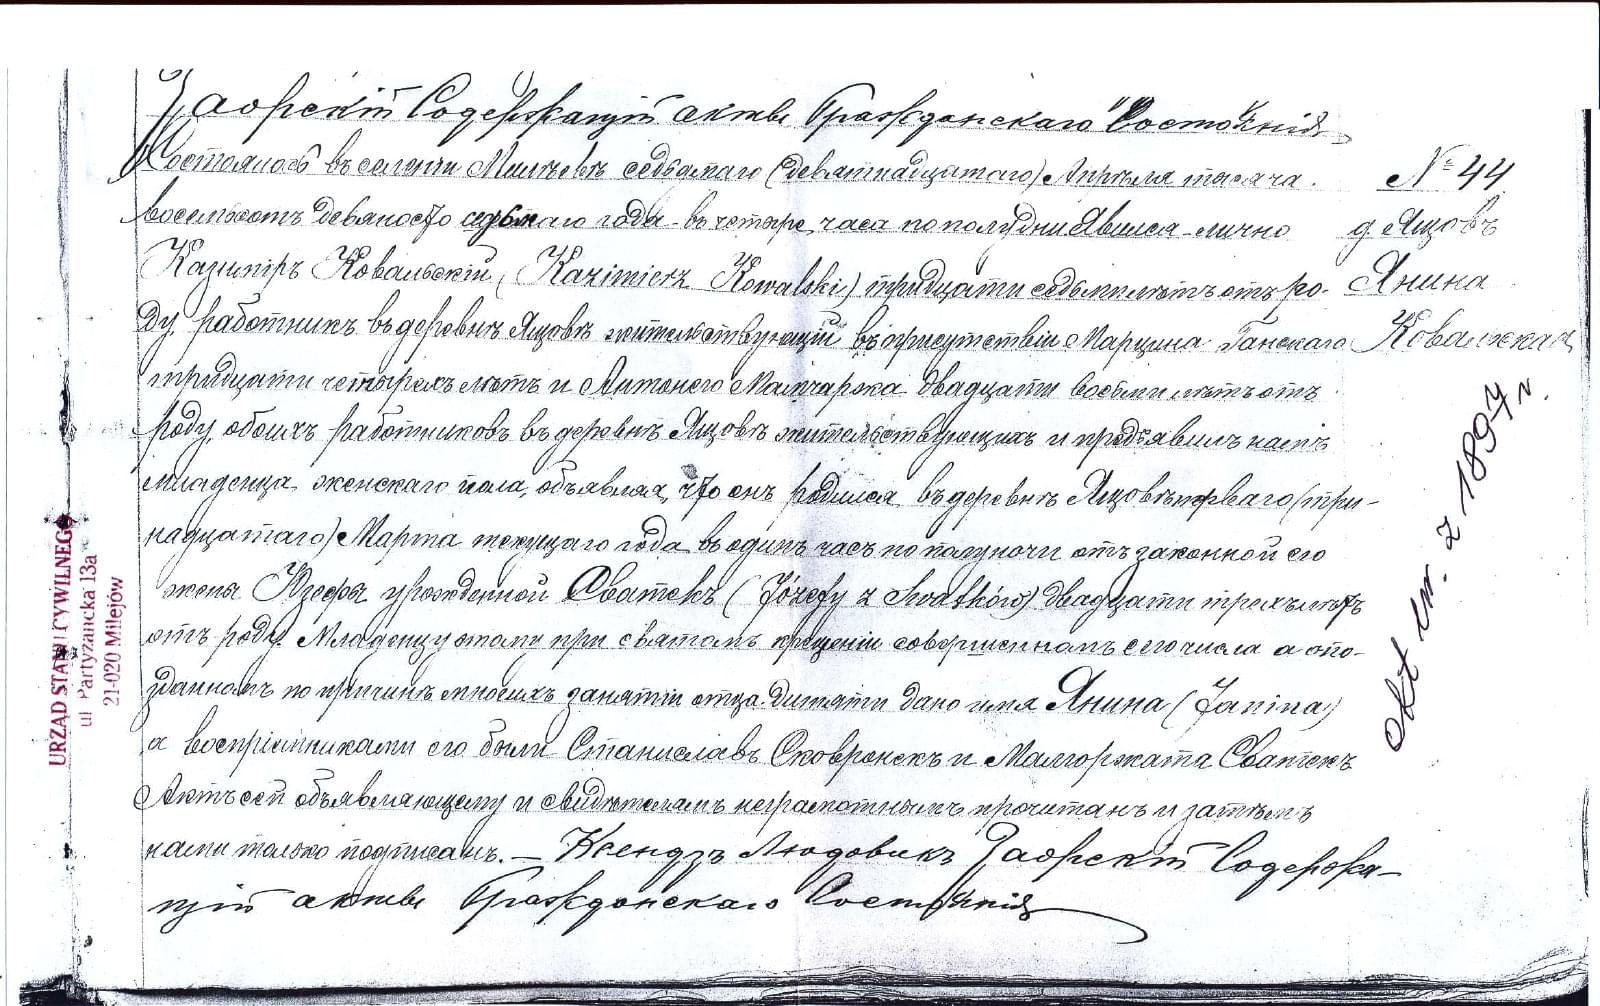 Заорскій Содержащій акты Гражданскаго Состоянія
Состоялось въ селеніи Милѣевѣ седьмаго (девятнадцатаго) Апрѣля тысяча
восемьсотъ девяносто седьмаго года въ четыре часа по полудни Явился лично
Казиміръ Ковальскій, (Kazimierz Kowalski) тридцати седьми лѣтъ отъ ро-
ду, работникъ въ деревнѣ Ящовѣ жительствующій въ присутствіи Марцина Ганскаго
тридцати четырехъ лѣтъ и Антонего Малчаржа двадцати восьми лѣтъ отъ
роду, обоихъ работниковъ въ деревнѣ Ящовѣ жительствующихъ и предъявилъ намъ
младенца женскаго пола, объявляя, что онъ родился въ деревнѣ Ящовѣ перваго (три-
надцатаго) Марта текущаго года въ одинъ часъ по полуночи отъ законной его
жены Юзефы урожденной Сватекъ (Józefy z Swatków) двадцати трехъ лѣтъ
отъ роду. Младенцу этому при святомъ крещеніи совершенномъ сего числа а опо-
зданномъ по причинѣ многихъ занятій отца дитяти дано имя Янина (Janina)
а воспріемниками его были Станиславъ Сковронекъ и Малгоржата Сватекъ
Актъ сей объявляющему и свидѣтелямъ неграмотнымъ прочитанъ и затѣмъ
нами только подписанъ. — Ксендзъ Людовикъ Заорскій Содержа-
щій акты Гражданскаго Состоянія
№ 44
д Ящовъ
Янина
Ковальская
akt ur. z 1897 r.
URZĄD STANU CYWILNEGO
ul Partyzancka 13a
21-020 Milejów